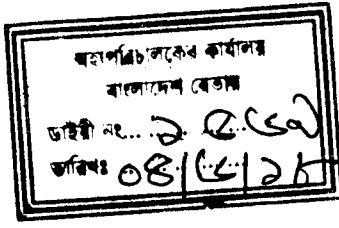 মহাপরিচালকের কার্যালয়
বাংলাদেশ বেতার
ডাইরী নং...
তারিখঃ ০৪/৫/১৮